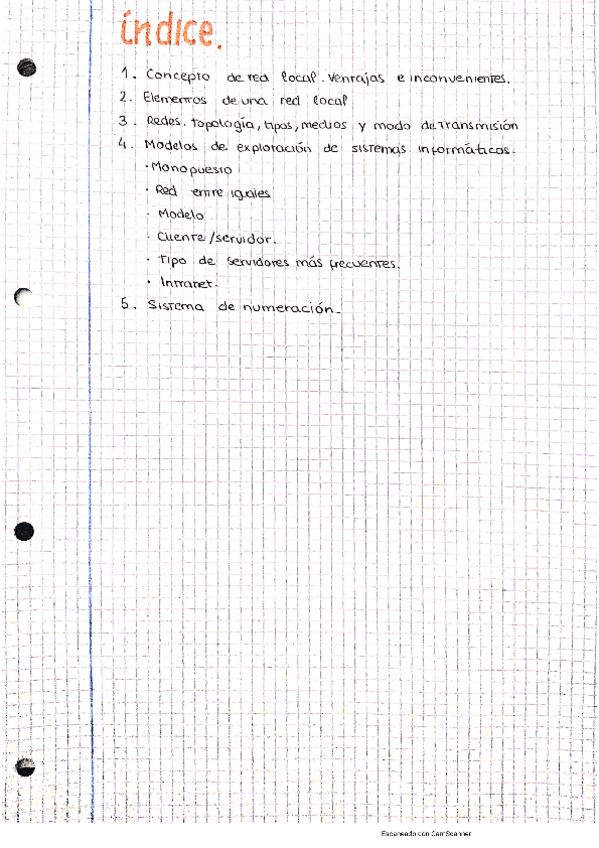 índice.
1. Concepto de red local. Ventajas e inconvenientes.
2. Elementos de una red local
3. Redes. topología, tipos, medios y modo de transmisión
4. Modelos de exploración de sistemas informáticos.
· Monopuesto
· Red entre iguales
· Modelo
· Cliente/servidor.
· Tipo de servidores más frecuentes.
· Intranet.
5. Sistema de numeración.
Escaneado con CamScanner